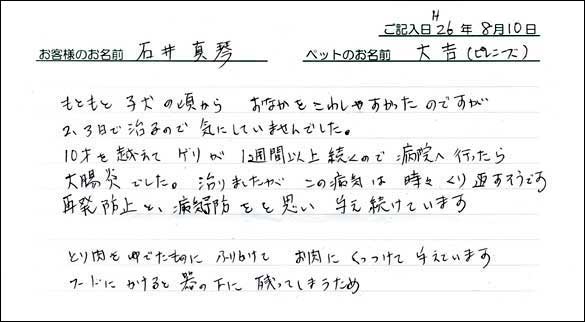 ご記入日 H26年8月10日
お客様のお名前 石井真琴 ペットのお名前 大吉(ピレニーズ)
もともと 子犬の頃から おなかをこわしやすかったのですが
2、3日で治るので 気にしていませんでした。
10才を越えて ゲリが 1週間以上続くので 病院へ行ったら
大腸炎でした。治りましたが この病気は 時々くり返すそうです
再発防止と、病気予防をと思い 与え続けています
とり肉をゆでたものに ふりかけて お肉にくっつけて 与えています
フードにかけると 器の下に 残ってしまうため